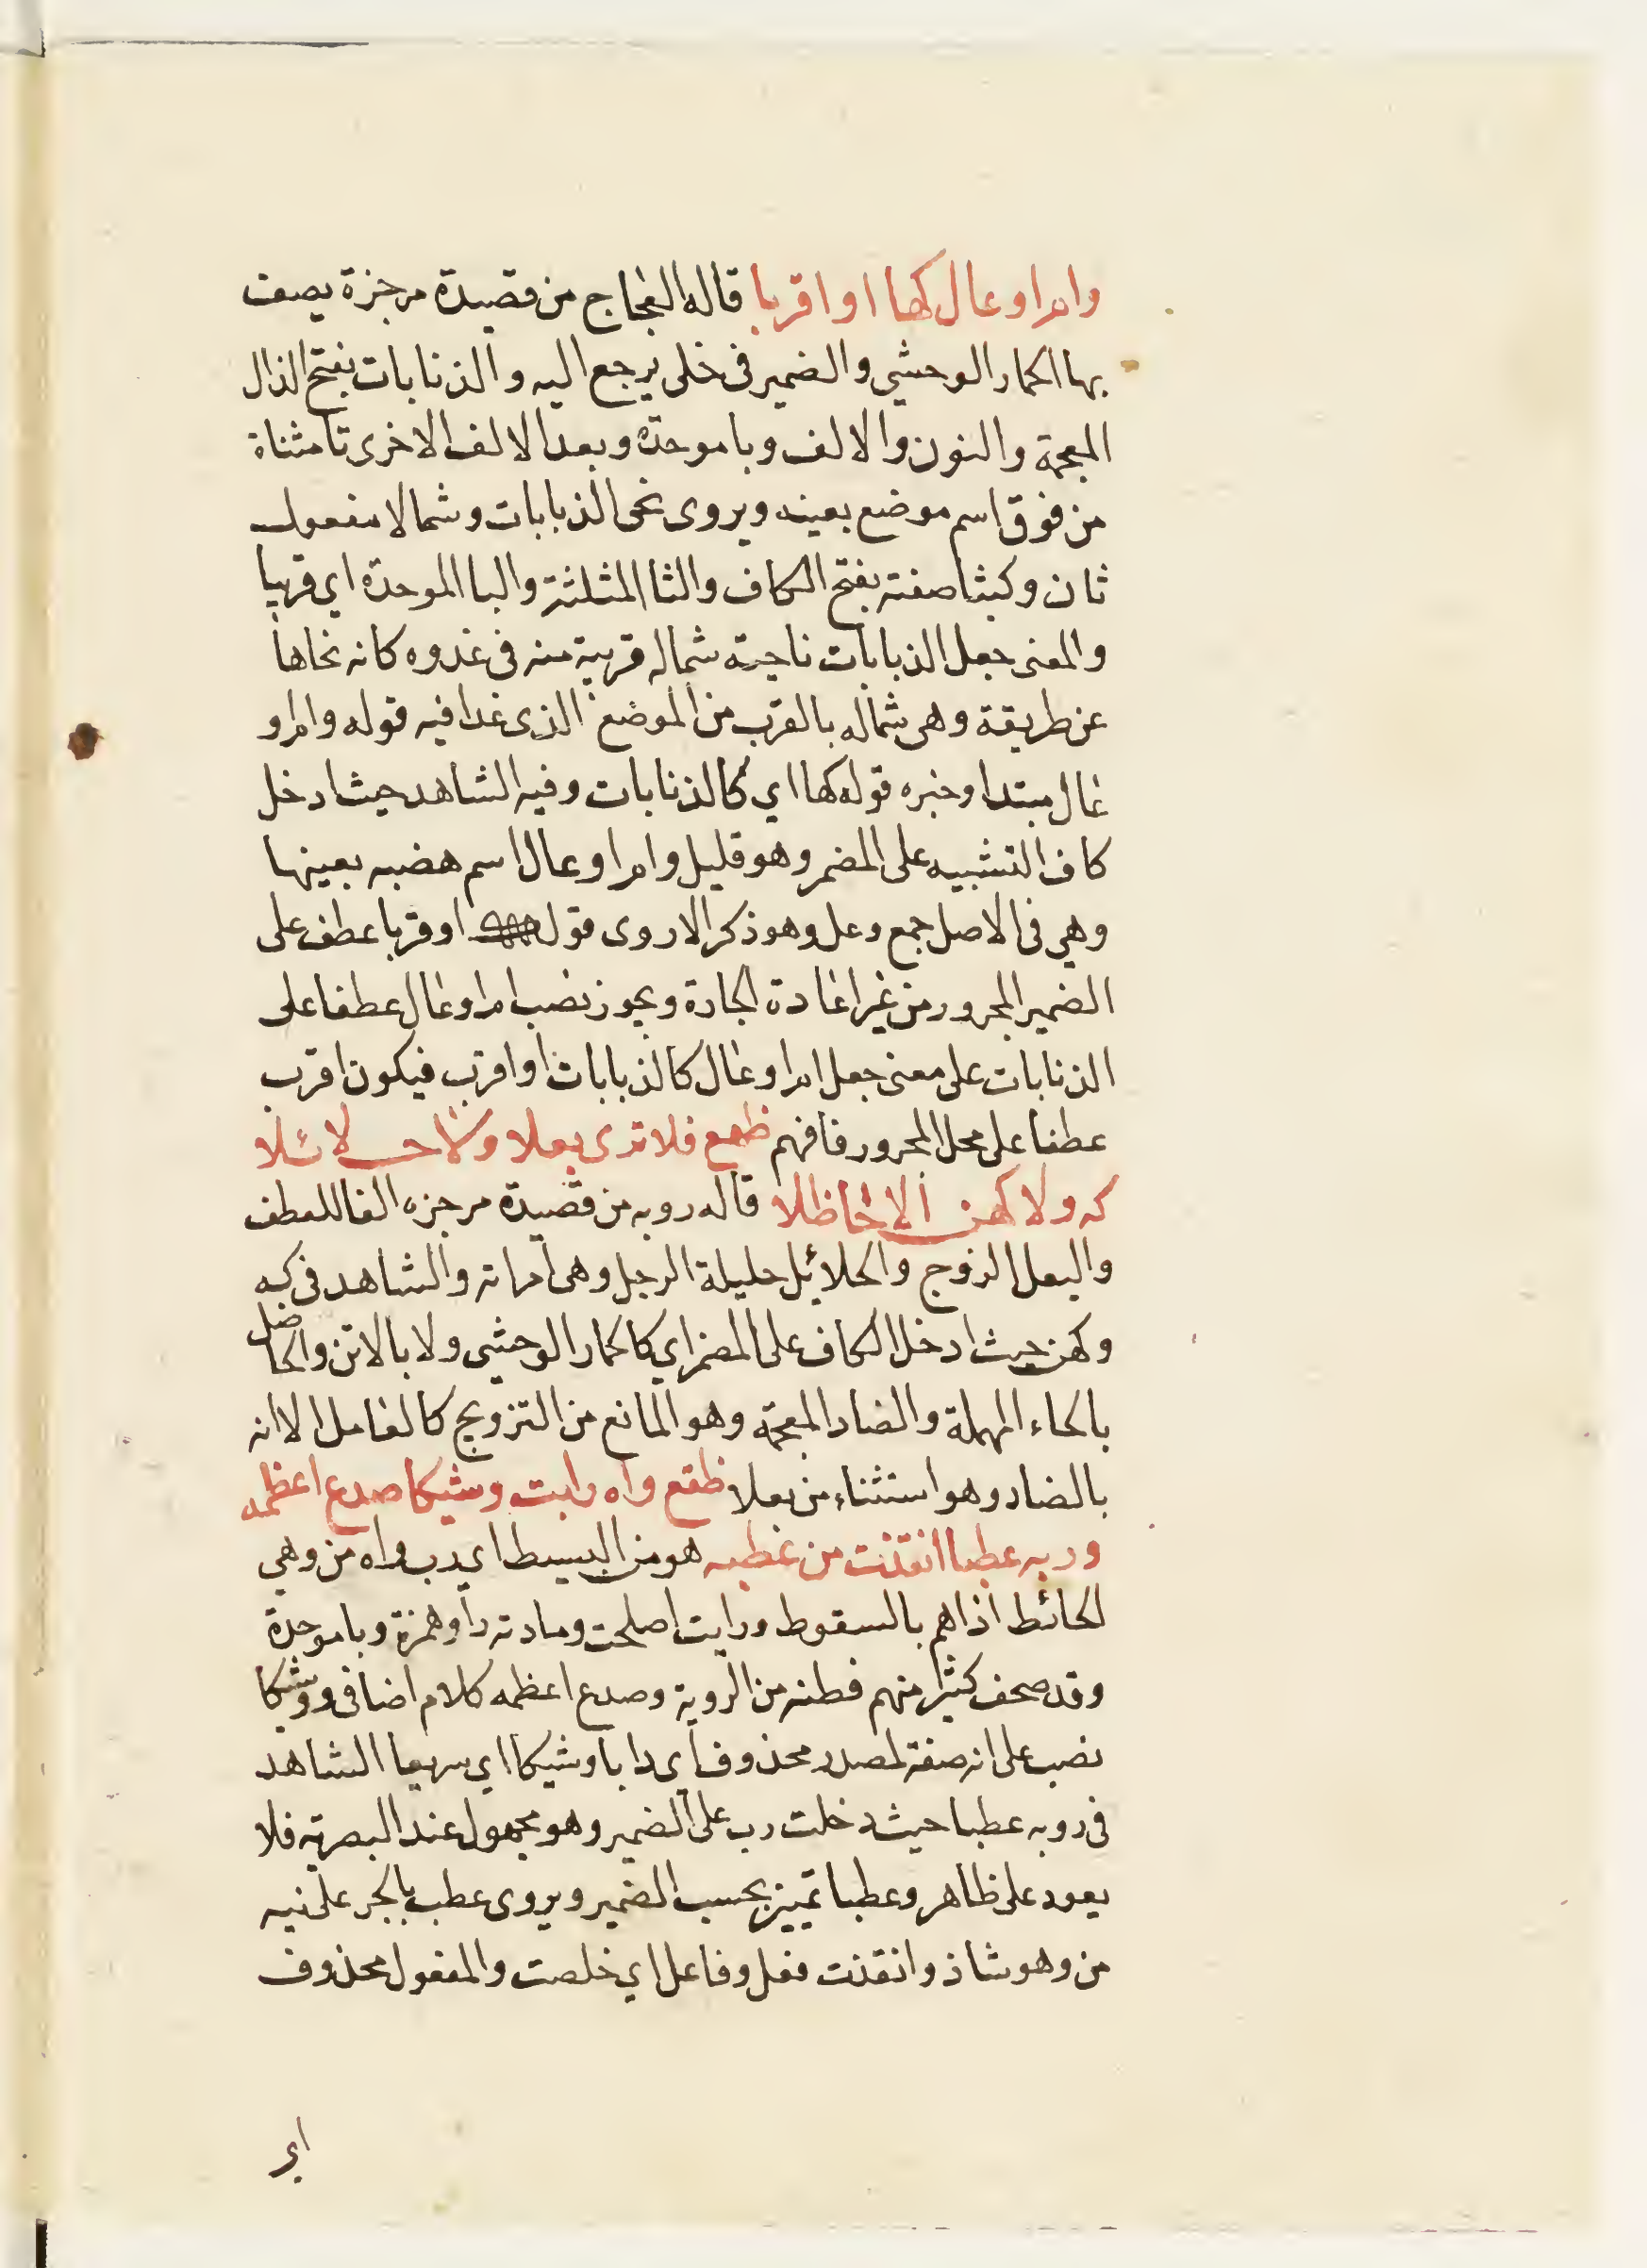 وام اوعال كها او اقربا قاله العجاج من قصيدة مرجزة يصف
بها الحمار الوحشي والضمير في خلى يرجع اليه والذنابات بفتح الذال
المعجمة والنون والالف وبا موحدة وبعد الالف الاخرى تا مثناة
من فوق اسم موضع بعينه ويروى نحى الذبابات وشمالا مفعول
ثان وكثبا صفته بفتح الكاف والثا المثلثة والبا الموحدة اي قريبا
والمعنى جعل الذبابات ناحية شماله قريبة منه في غدوه كانه نحاها
عن طريقة وهى شماله بالقرب من الموضع الذى غدا فيه قوله وام او
عال مبتدا وخبره قوله كها اي كالذنابات وفيه الشاهد حيث ادخل
كاف التشبيه على المضمر وهو قليل وام اوعال اسم هضبه بعينها
وهي في الاصل جمع وعل وهو ذكر الاروى قوله اوقربا عطف على
الضمير المجرور من غير اعادة الجارة ويجوز نصب ام اوعال عطفا على
الذنابات على معنى جعل ام اوعال كالذبابات او اقرب فيكون اقرب
عطفا على محل المجرور فافهم ظهع فلا ترى بعلا ولا حـلائلا
كه ولا كهن الا حاظلا قاله روبه من قصيدة مرجزه الفا للعطف
والبعل الزوج والحلائل حليلة الرجل وهى امراته والشاهد في كه
وكهن حيث ادخل الكاف على المضمر اي كالحمار الوحشى ولا بالاتن والحاضل
بالحاء المهملة والضاد المعجمة وهو المانع من التزويج كالعامل الا انه
بالضاد وهو استثناء من بعلا ظقع واه رابت وشيكا صدع اعظمه
وربه عطبا انقذت من عطبه هو من البسيط اي رب واه من وهي
الحائط اذا هم بالسقوط ورابت اصلحت ومادته را وهمزة وبا موحدة
وقد صحف كثير منهم فظنه من الروية وصدع اعظمه كلام اضافي ووشيكا
نصب على انه صفة لمصدر محذوف اى رابا وشيكا اي سريعا الشاهد
في روبه عطبا حيث دخلت رب على الضمير وهو مجهول عند البصرية فلا
يعود على ظاهر وعطبا تمييز بحسب الضمير ويروى عطب بالجر على نيه
من وهو شاذ وانقذت فعل وفاعل اي خلصت والمفعول محذوف
اي